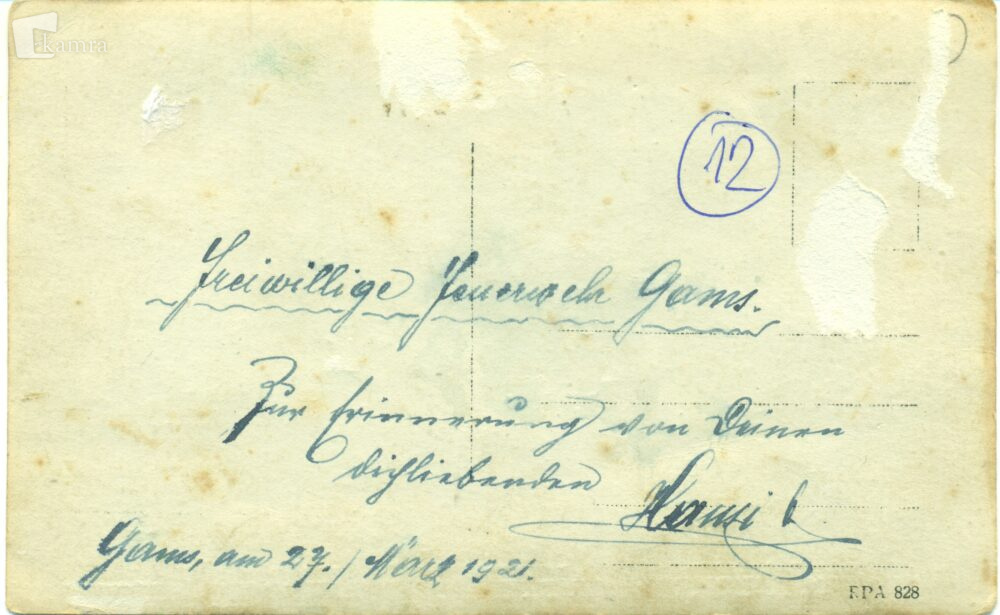 kamra
12
Freiwillige Feuerwehr Gams.
Zur Erinnerung von Deinen
dichliebenden
Hansi
Gams, am 27. / März 1921.
RPA 828